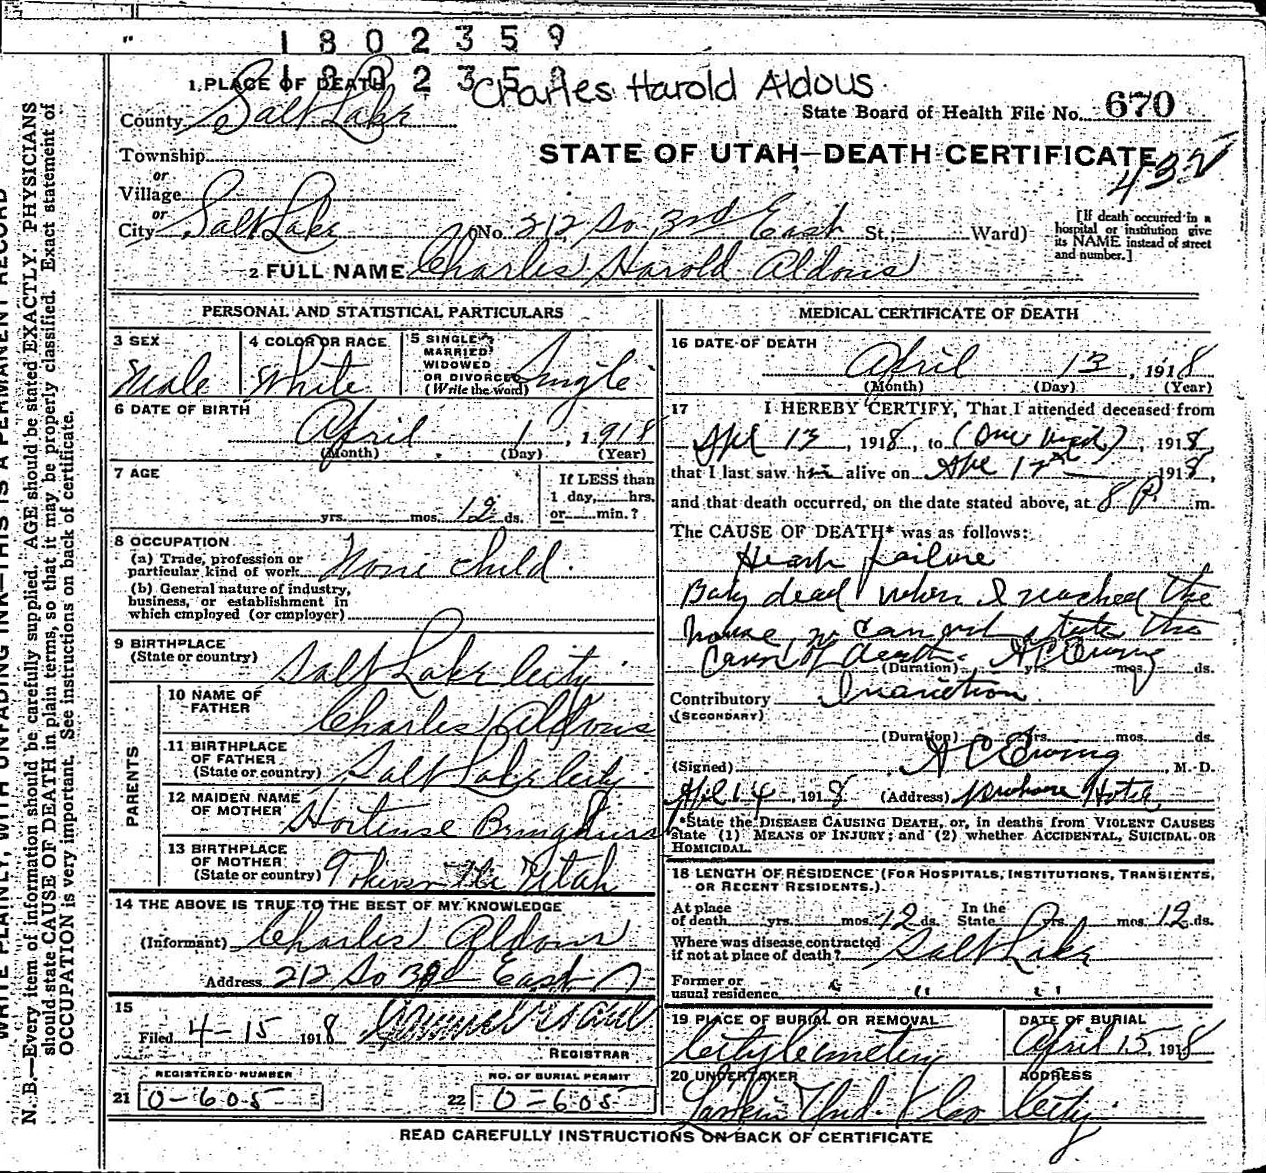 1802359
1802359
Charles Harold Aldous
1. PLACE OF DEATH
County Salt Lake
State Board of Health File No. 670
Township
STATE OF UTAH—DEATH CERTIFICATE
432
or
Village
or
City Salt Lake (No. 212 So 3rd East St.; Ward)
[If death occurred in a hospital or institution give its NAME instead of street and number.]
2 FULL NAME Charles Harold Aldous
PERSONAL AND STATISTICAL PARTICULARS
3 SEX
Male
4 COLOR OR RACE
White
5 SINGLE, MARRIED, WIDOWED OR DIVORCED (Write the word)
Single
6 DATE OF BIRTH
April 1, 1918
(Month) (Day) (Year)
7 AGE
yrs. mos. 12 ds.
If LESS than
1 day, hrs.
or min.?
8 OCCUPATION
(a) Trade, profession or
particular kind of work None child.
(b) General nature of industry,
business, or establishment in
which employed (or employer)
9 BIRTHPLACE
(State or country) Salt Lake City.
PARENTS
10 NAME OF
FATHER Charles Aldous
11 BIRTHPLACE
OF FATHER
(State or country) Salt Lake City.
12 MAIDEN NAME
OF MOTHER Hortense
13 BIRTHPLACE
OF MOTHER
(State or country) Utah
14 THE ABOVE IS TRUE TO THE BEST OF MY KNOWLEDGE
(Informant) Charles Aldous
Address 212 So 3rd East
15
Filed 4-15 1918
REGISTRAR
REGISTERED NUMBER
21 0-605
NO. OF BURIAL PERMIT
22 0-605
MEDICAL CERTIFICATE OF DEATH
16 DATE OF DEATH
April 13, 1918
(Month) (Day) (Year)
17 I HEREBY CERTIFY, That I attended deceased from
Apl 13, 1918, to (One visit), 1918,
that I last saw him alive on Apl 12th 1918,
and that death occurred, on the date stated above, at 8 P. m.
The CAUSE OF DEATH* was as follows:
Heart failure
Baby dead when I reached the
house, so can not state the
cause of death. A C Ewing
(Duration) yrs. mos. ds.
Contributory Inanition
(SECONDARY)
(Duration) yrs. mos. ds.
(Signed) A C Ewing, M. D.
Apl 14, 1918 (Address) Hotel
*State the DISEASE CAUSING DEATH, or, in deaths from VIOLENT CAUSES
state (1) MEANS OF INJURY; and (2) whether ACCIDENTAL, SUICIDAL OR
HOMICIDAL.
18 LENGTH OF RESIDENCE (FOR HOSPITALS, INSTITUTIONS, TRANSIENTS,
OR RECENT RESIDENTS.)
At place of death yrs. mos. 12 ds. In the State yrs. mos. 12 ds.
Where was disease contracted
if not at place of death? Salt Lake
Former or
usual residence " " "
19 PLACE OF BURIAL OR REMOVAL
City Cemetery
DATE OF BURIAL
April 15, 1918
20 UNDERTAKER
Larkin Und.
ADDRESS
City.
READ CAREFULLY INSTRUCTIONS ON BACK OF CERTIFICATE
WRITE PLAINLY, WITH UNFADING INK—THIS IS A PERMANENT RECORD
N. B.—Every item of information should be carefully supplied. AGE should be stated EXACTLY. PHYSICIANS
should state CAUSE OF DEATH in plain terms, so that it may be properly classified. Exact statement of
OCCUPATION is very important. See instructions on back of certificate.